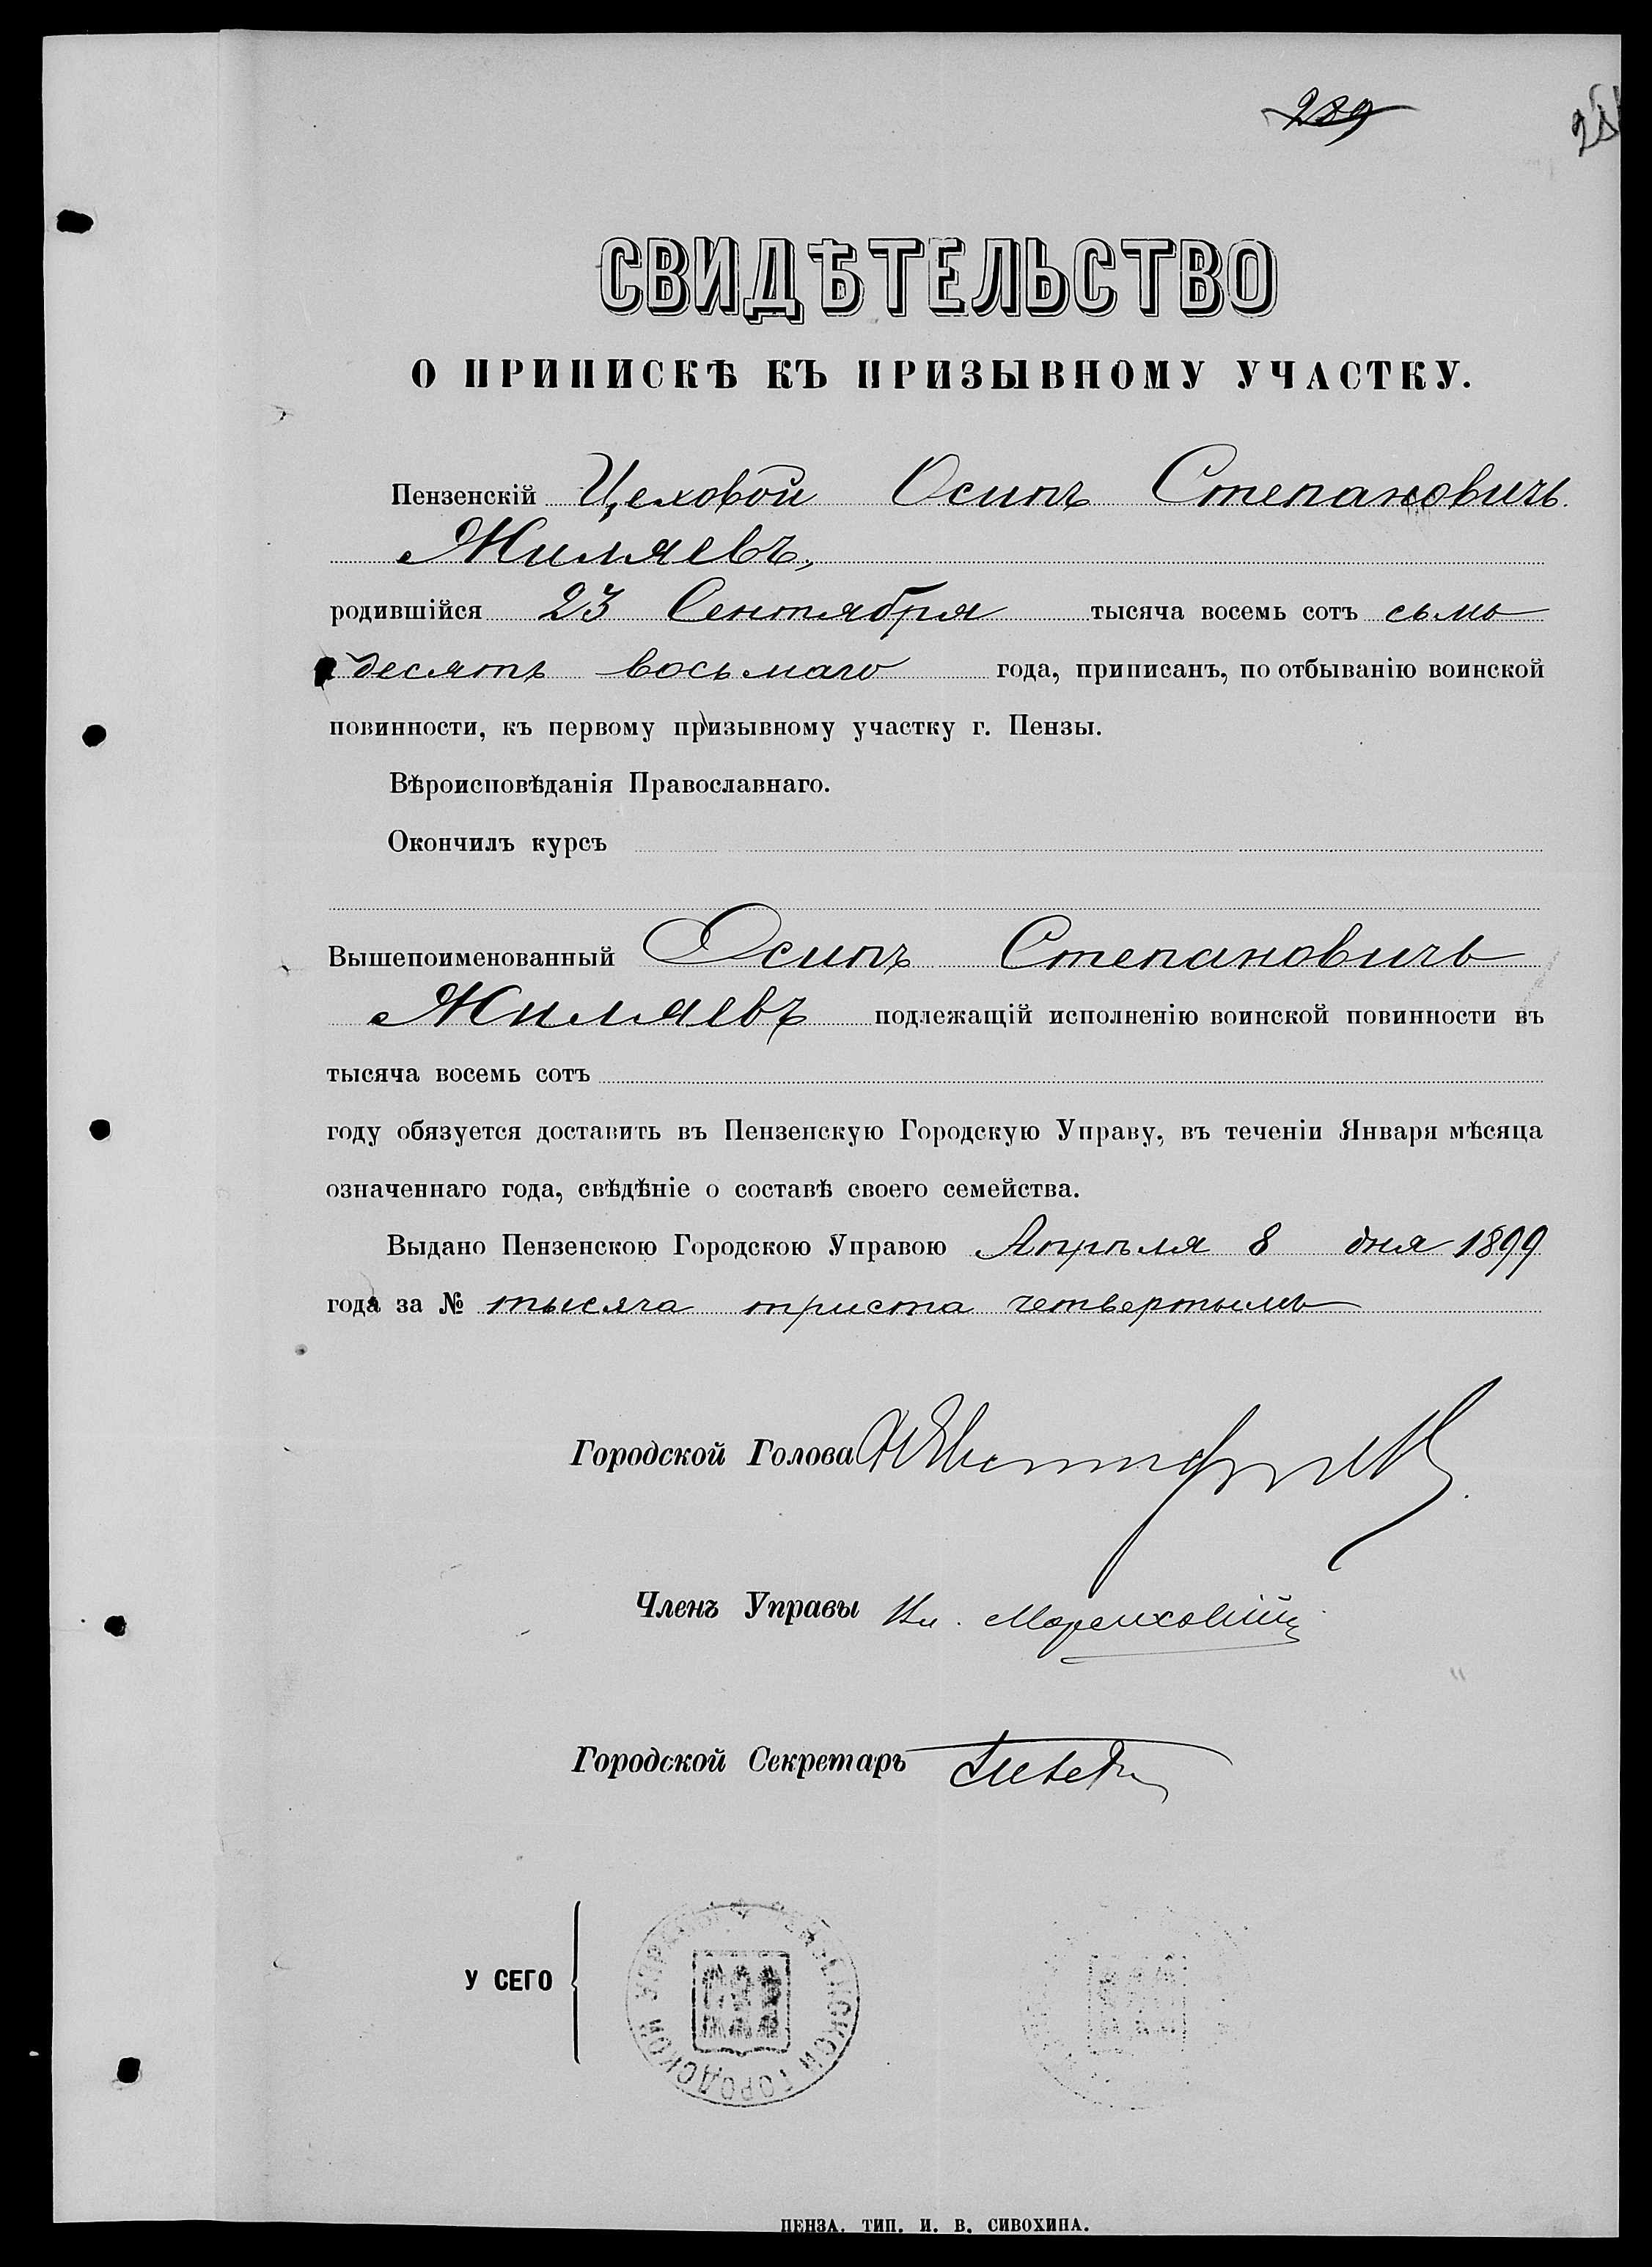 289
СВИДѢТЕЛЬСТВО
О ПРИПИСКѢ КЪ ПРИЗЫВНОМУ УЧАСТКУ.
Пензенскій Цеховой Осипъ Степановичъ
Жиляевъ,
родившійся 23 Сентября тысяча восемь сотъ семь
десятъ восьмаго года, приписанъ, по отбыванію воинской
повинности, къ первому призывному участку г. Пензы.
Вѣроисповѣданія Православнаго.
Окончилъ курсъ
Вышепоименованный Осипъ Степановичъ
Жиляевъ подлежащій исполненію воинской повинности въ
тысяча восемь сотъ
году обязуется доставить въ Пензенскую Городскую Управу, въ теченіи Января мѣсяца
означеннаго года, свѣдѣніе о составѣ своего семейства.
Выдано Пензенскою Городскою Управою Апрѣля 8 дня 1899
года за № тысяча триста четвертымъ
Городской Голова
Членъ Управы
Городской Секретарь
У СЕГО
ПЕНЗЕНСКОЙ ГОРОДСКОЙ УПРАВЫ
ПЕНЗА. ТИП. И. В. СИВОХИНА.